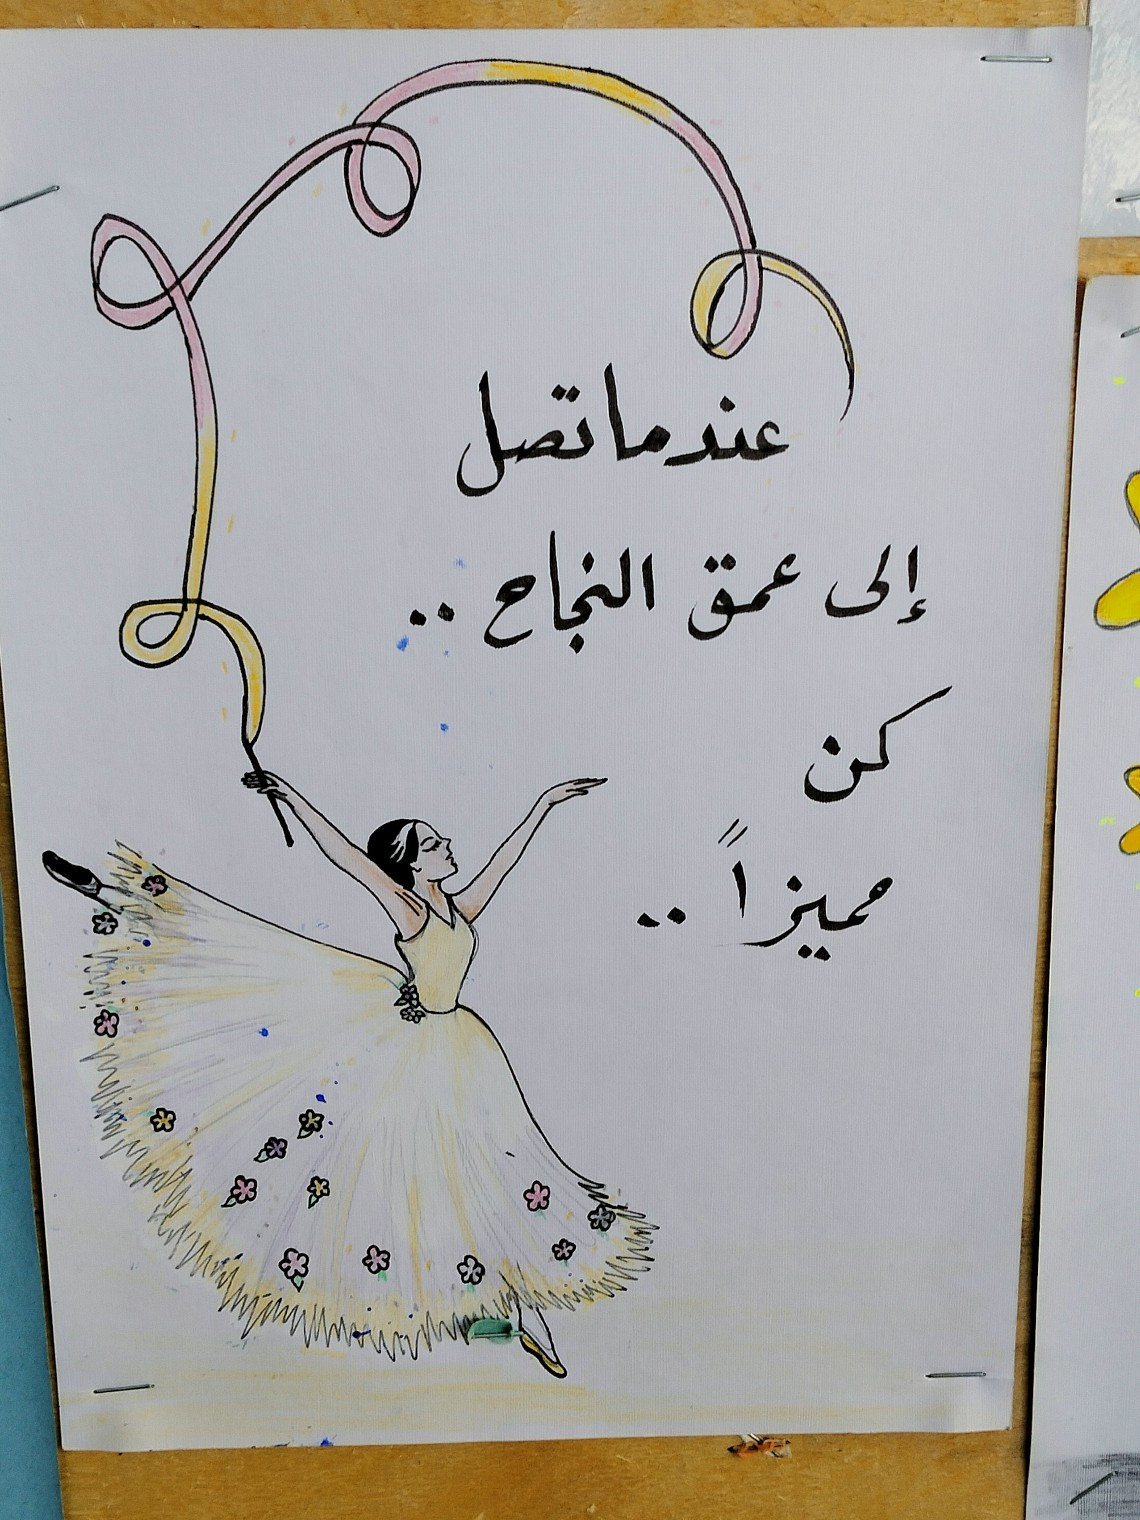 عندما تصل
إلى عمق النجاح ..
كن
مميزاً ..